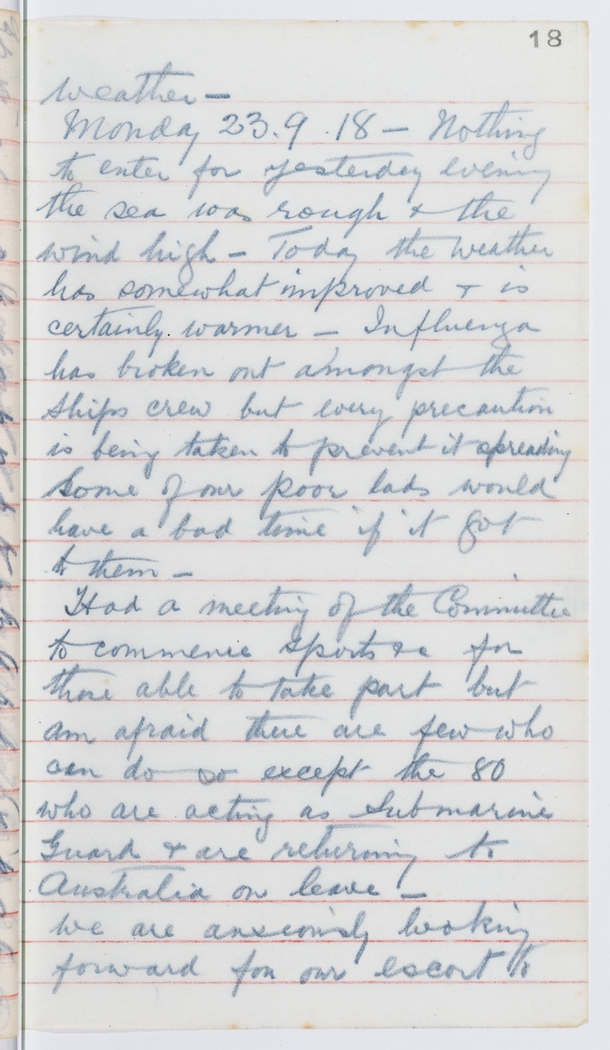 18
weather —
Monday 23.9.18 — Nothing
to enter for yesterday evening
the sea was rough & the
wind high — Today the weather
has somewhat improved & is
certainly warmer — Influenza
has broken out amongst the
ships crew but every precaution
is being taken to prevent it spreading
Some of our poor lads would
have a bad time if it got
to them —
Had a meeting of the Committee
to commence sports &c for
those able to take part but
am afraid there are few who
can do so except the 80
who are acting as Submarine
Guard & are returning to
Australia on leave —
We are anxiously looking
forward for our escort to